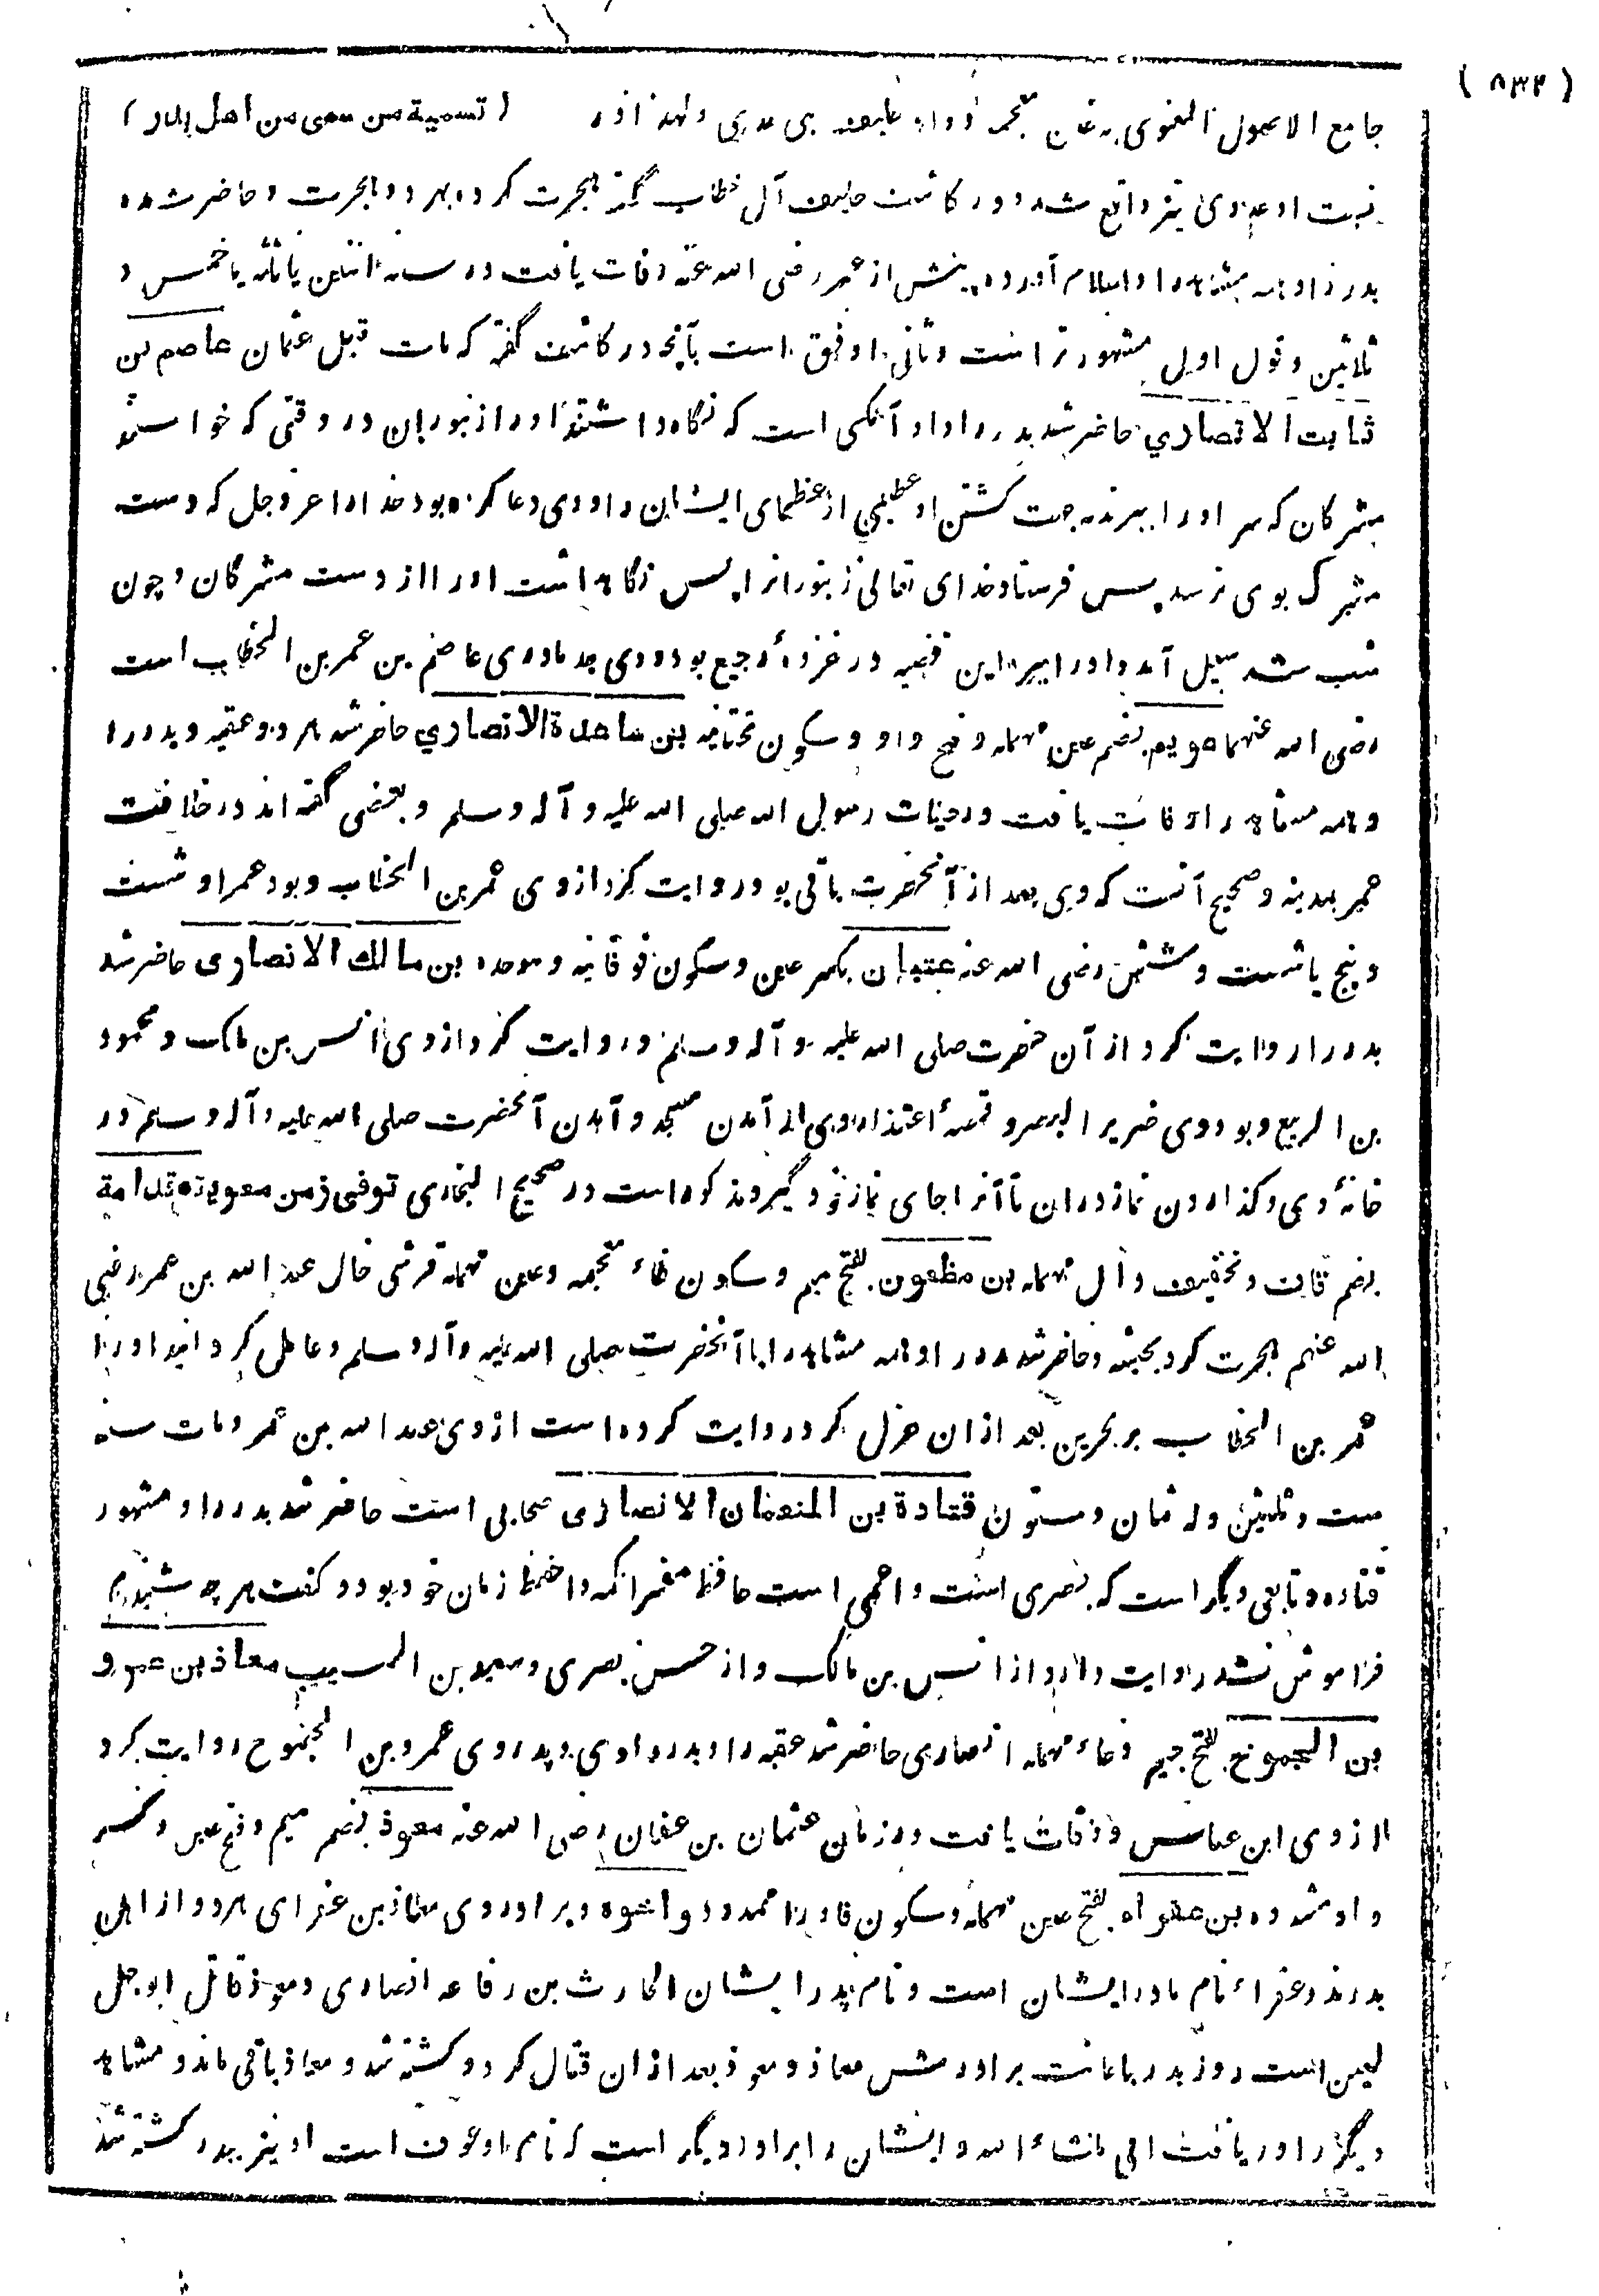 ( ۸۳۴ )
جامع الاصول العنوی به غان معجمه حلیف بنی عدی ولهذا در ( تسمیة من سمی من اهل بدر )
نسبت او عدوی نیز واقع شده و در کاشف حلیف آل خطاب گفته هجرت کرده بهر دو هجرت و حاضر شده
بدر را و همه مشاهد را و اسلام آورده پیش از عمر رضی الله عنه وفات یافت در سنه اثنین یا ثلثه یا خمس و
ثلاثین و قول اول مشهور تر است و ثانی اوفق است بآنچه در کاشف گفته که مات قبل عثمان عاصم بن
ثابت الانصاری حاضر شد بدر را و او آنکسی است که نگاه داشتند او را زنبوران در وقتی که خواستند
مشرکان که سر او را ببرند بجهت کشتن او عظیمی از عظمای ایشان را و وی دعا کرده بود خدا را عز و جل که دست
مشرک بوی نرسد پس فرستاد خدای تعالی زنبوران را پس نگاه داشت او را از دست مشرکان و چون
شب شد سیل آمد و او را ببرد این قضیه در غزوهٔ رجیع بود و وی جد مادری عاصم بن عمر بن الخطاب است
رضی الله عنهما عویم بضم عین مهمله و فتح واو و سکون تحتانیه بن ساعدة الانصاري حاضر شد هر دو عقبه و بدر را
و همه مشاهد را وفات یافت در حیات رسول الله صلی الله علیه و آله و سلم و بعضی گفته اند در خلافت
عمر بمدینه و صحیح آنست که وی بعد از آنحضرت باقی بود روایت کرد از وی عمر بن الخطاب و بود عمر او شست
و پنج یا شست و شش رضی الله عنه عتبان بکسر عین و سکون فوقانیه و موحده بن مالك الانصاری حاضر شد
بدر را روایت کرد از آن حضرت صلی الله علیه و آله و سلم و روایت کرد از وی انس بن مالک و محمود
بن الربیع و بود وی ضریر البصر و قصهٔ اعتذار وی از آمدن مسجد و آمدن آنحضرت صلی الله علیه و آله و سلم در
خانهٔ وی و گذاردن نماز در ان تا آنرا جای نماز خود گیرد مذکور است در صحیح البخاری توفی زمن معویة قدامة
بضم قاف و تخفیف دال مهمله بن مظعون بفتح میم و سکون ظاء معجمه و عین مهمله قرشی خال عبد الله بن عمر رضی
الله عنهم هجرت کرد بحبشه و حاضر شد بدر را و همه مشاهد را با آنحضرت صلی الله علیه و آله و سلم و عامل گردانید او را
عمر بن الخطاب بر بحرین بعد ازان عزل کرد روایت کرده است از وی عبد الله بن عمر و مات سنه
ست و ثلثین وله ثمان و ستون قتادة بن النعمان الانصاری صحابی است حاضر شد بدر را و مشهور
قتاده تابعی دیگر است که بصری است و اعمی است حافظ مفسر اکمه و احفظ زمان خود بود و گفت هر چه شنیدم
فراموش نشد روایت دارد از انس بن مالک و از حسن بصری و سعید بن المسیب معاذ بن عمرو
بن الجموح بفتح جیم و حاء مهمله انصاری حاضر شد عقبه را و بدر را وی و پدر وی عمرو بن الجموح روایت کرد
از وی ابن عباس وفات یافت در زمان عثمان بن عفان رضی الله عنه معوذ بضم میم و فتح عین و کسر
واو مشدده بن عفراء بفتح عین مهمله و سکون فا و را ممدود و اخوه و برادر وی معاذ بن عفرای هر دو از اهل
بدرند و عفراء نام مادر ایشان است و نام پدر ایشان الحارث بن رفاعه انصاری و معوذ قاتل ابو جهل
لعین است روز بدر باعانت برادرش معاذ و معوذ بعد ازان قتال کرد و کشته شد و معاذ باقی ماند و مشاهد
دیگر را دریافت الی ماشاء الله و ایشان را برادر دیگر است که نام او عوف است او نیز ببدر کشته شد